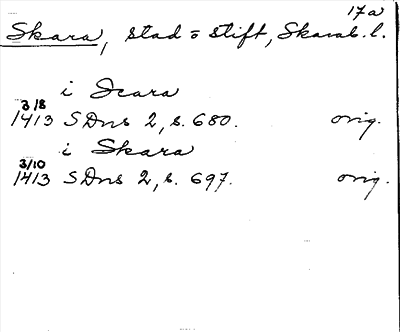 17a
Skara, stad o stift, Skarab. l.
i Scara
3/8
1413 SDns 2, s. 680. orig.
i Skara
3/10
1413 SDns 2, s. 697. orig.